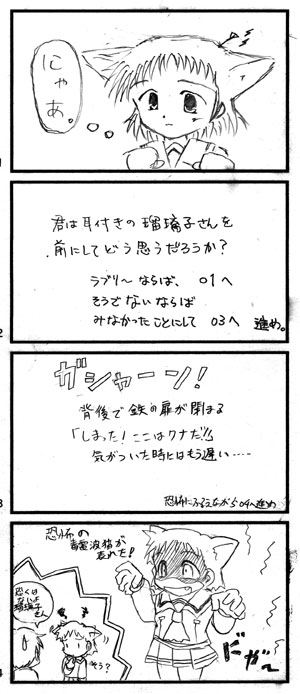 にゃあ。
1
君は耳付きの瑠璃子さんを
前にしてどう思うだろうか?
ラブリ~ならば、01へ
そうでないならば
みなかったことにして 03へ 進め。
2
ガシャーン!
背後で鉄の扉が閉まる
「しまった!ここはワナだ!!」
気がついた時にはもう遅い……
恐怖にふるえながら04へ進め
3
恐怖の
毒電波猫が
表れた!
恐くは
ないよ
瑠璃子
さん
そう?
にゃ~
4